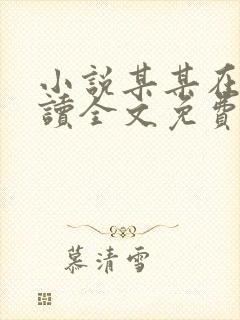 小說某某在
讀全文免費
慕清雪